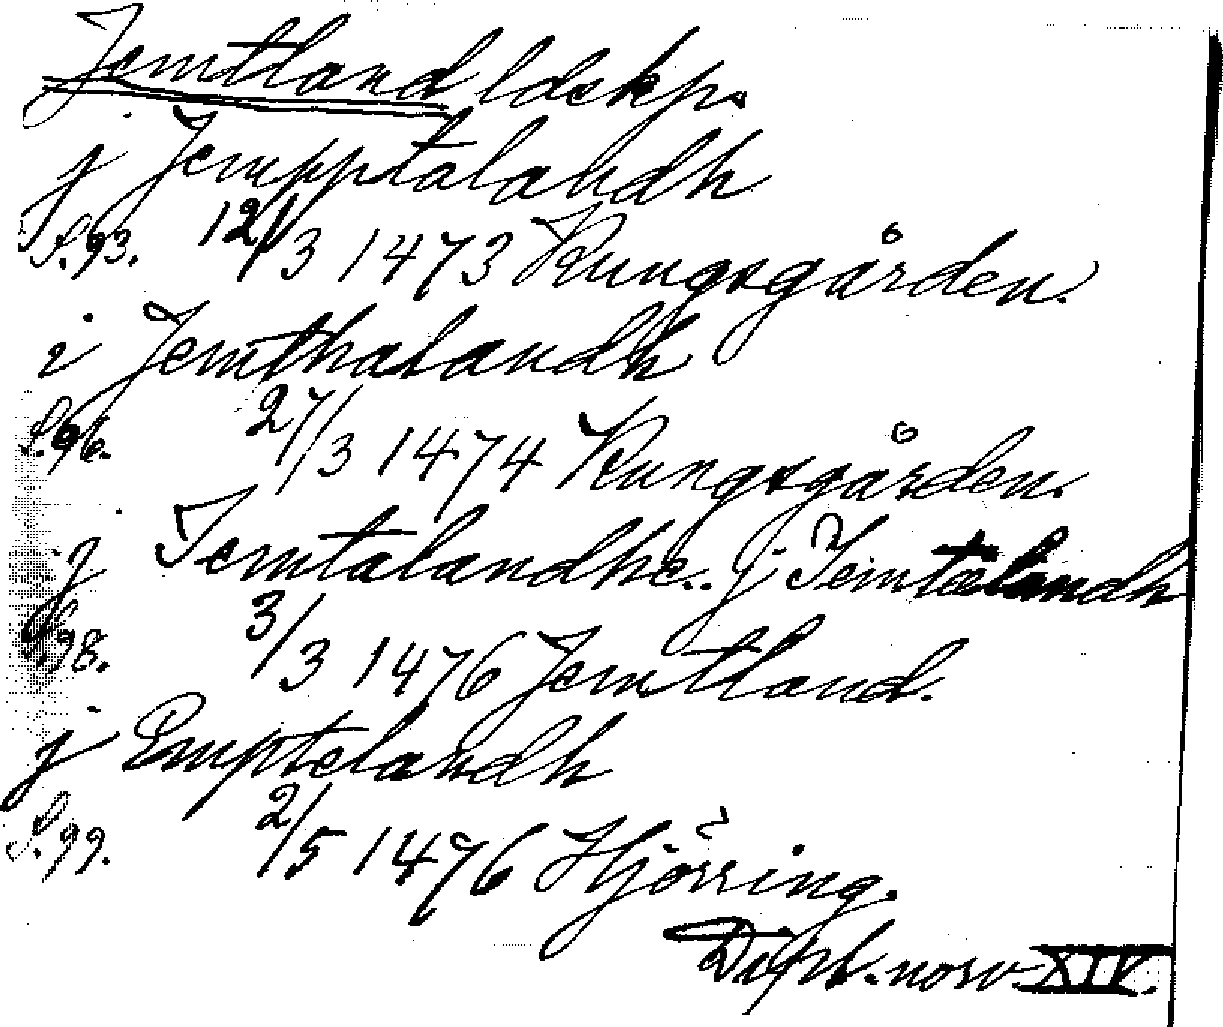 Jemtland ldskp.
j Jempptalandh
S. 93. 12/3 1473 Kungsgården.
i Jemthalandh
S. 96. 27/3 1474 Kungsgården.
j Jemtalandhe. j Jemtalandh
S. 98. 3/3 1476 Jemtland.
j Emptelandh
S. 99. 2/5 1476 Hjörring.
Dipl. norv. XIV.